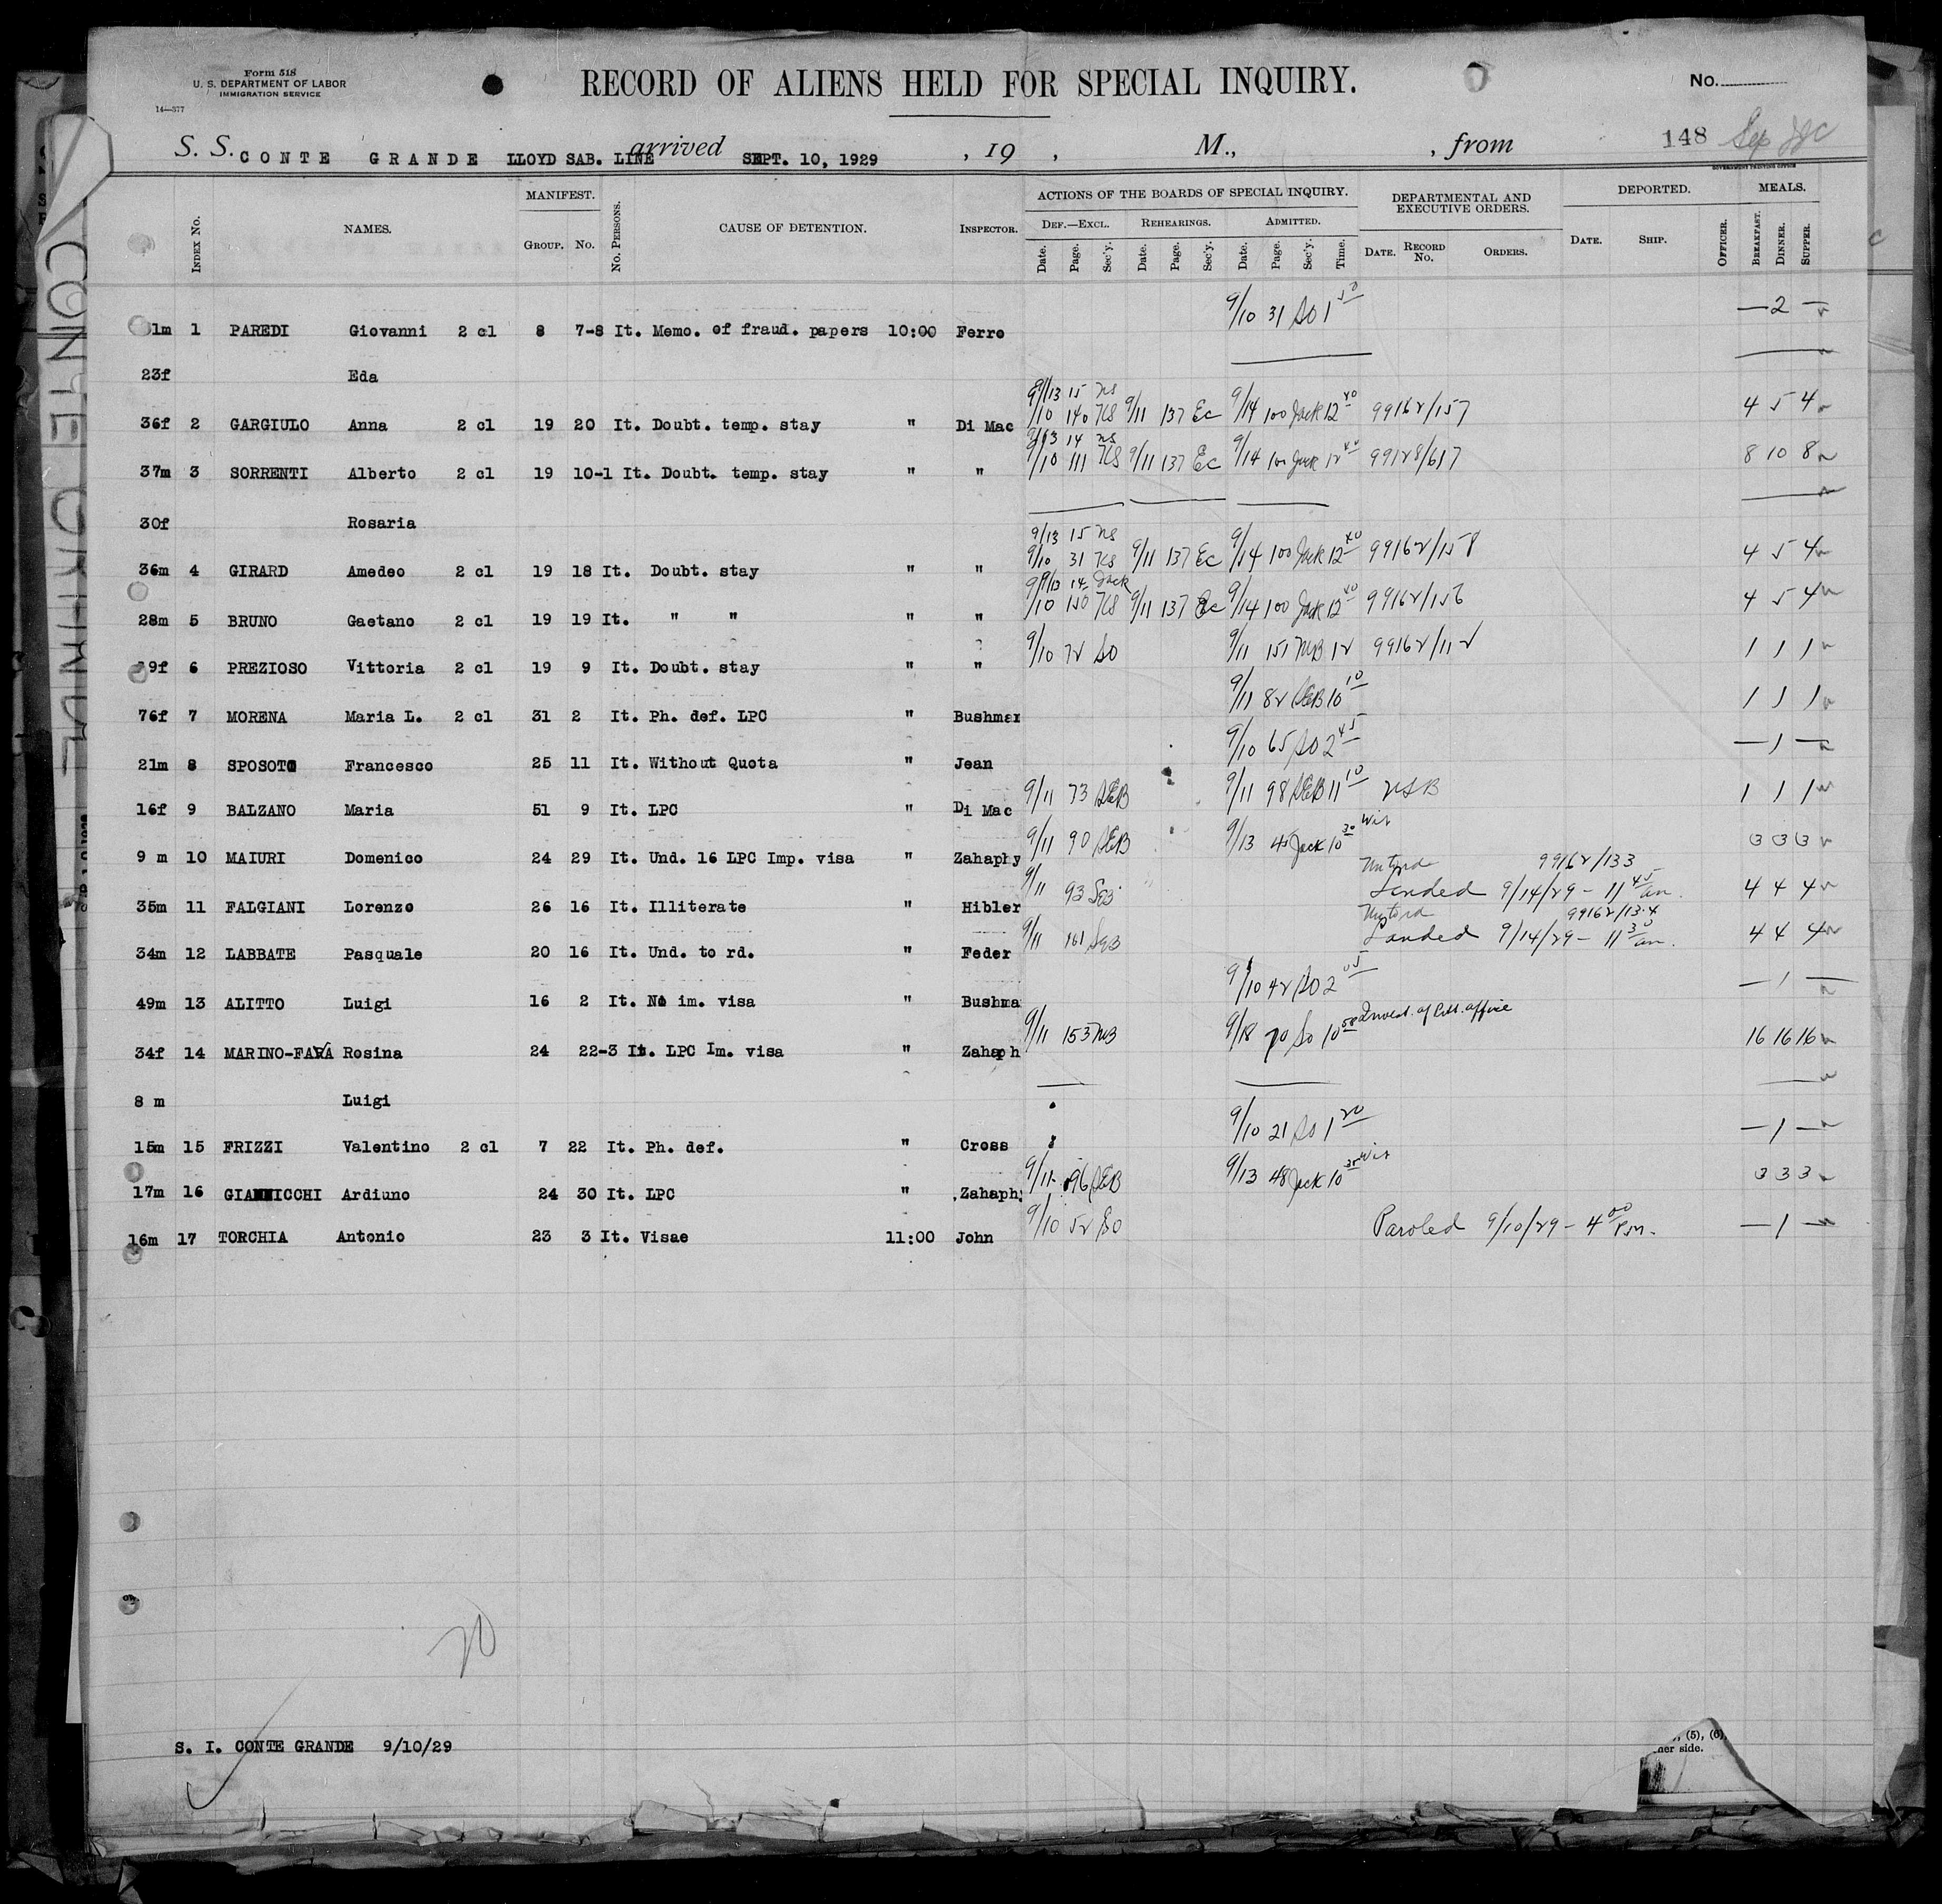 Form 518
U. S. DEPARTMENT OF LABOR
IMMIGRATION SERVICE
14—377
RECORD OF ALIENS HELD FOR SPECIAL INQUIRY.
No.
148 Sep
S. S. CONTE GRANDE LLOYD SAB. LINE arrived SEPT. 10, 1929 , 19 , M., , from
GOVERNMENT PRINTING OFFICE
INDEX No. NAMES. MANIFEST. GROUP. No. No. PERSONS. CAUSE OF DETENTION. INSPECTOR. ACTIONS OF THE BOARDS OF SPECIAL INQUIRY. DEF.—EXCL. Date. Page. Sec'y. REHEARINGS. Date. Page. Sec'y. ADMITTED. Date. Page. Sec'y. Time. DEPARTMENTAL AND EXECUTIVE ORDERS. DATE. RECORD No. ORDERS. DEPORTED. DATE. SHIP. OFFICER. MEALS. BREAKFAST. DINNER. SUPPER.
1m 1 PAREDI Giovanni 2 cl 8 7-8 It. Memo. of fraud. papers 10:00 Ferro 9/10 31 SO 1 50 — 2 —
23f Eda
9/13 15 NS
36f 2 GARGIULO Anna 2 cl 19 20 It. Doubt. temp. stay " Di Mac 9/10 140 KS 9/11 137 EC 9/14 100 Jack 12 40 99162/157 4 5 4
9/13 14 NS
37m 3 SORRENTI Alberto 2 cl 19 10-1 It. Doubt. temp. stay " " 9/10 111 KS 9/11 137 EC 9/14 100 Jack 12 40 99128/617 8 10 8
30f Rosaria
9/13 15 NS
36m 4 GIRARD Amedeo 2 cl 19 18 It. Doubt. stay " " 9/10 31 KS 9/11 137 EC 9/14 100 Jack 12 40 99162/158 4 5 4
9/13 14 Jack
28m 5 BRUNO Gaetano 2 cl 19 19 It. " " " " 9/10 150 KS 9/11 137 EC 9/14 100 Jack 12 40 99162/156 4 5 4
9f 6 PREZIOSO Vittoria 2 cl 19 9 It. Doubt. stay " " 9/10 72 SO 9/11 151 MB 12 99162/112 1 1 1
76f 7 MORENA Maria L. 2 cl 31 2 It. Ph. def. LPC " Bushman 9/11 82 SEB 10 10 1 1 1
21m 8 SPOSOTO Francesco 25 11 It. Without Quota " Jean 9/10 65 SO 2 45 — 1 —
16f 9 BALZANO Maria 51 9 It. LPC " Di Mac 9/11 73 SEB 9/11 98 SEB 11 10 1 1 1
9 m 10 MAIURI Domenico 24 29 It. Und. 16 LPC Imp. visa " Zahaphy 9/11 90 SEB 9/13 45 Jack 10 30 3 3 3
99162/133
35m 11 FALGIANI Lorenzo 26 16 It. Illiterate " Hibler 9/11 93 SEB Landed 9/14/29 — 11 45 am. 4 4 4
99162/134
34m 12 LABBATE Pasquale 20 16 It. Und. to rd. " Feder 9/11 101 SEB Landed 9/14/29 — 11 30 am. 4 4 4
49m 13 ALITTO Luigi 16 2 It. No im. visa " Bushma 9/10 42 SO 2 05 — 1 —
34f 14 MARINO-FAVA Rosina 24 22-3 It. LPC Im. visa " Zahaph 9/11 153 MB 9/18 70 SO 10 50 16 16 16
8 m Luigi
15m 15 FRIZZI Valentino 2 cl 7 22 It. Ph. def. " Cross 9/10 21 SO 1 20 — 1 —
17m 16 GIANNICCHI Ardiuno 24 30 It. LPC " Zahaph 9/11 96 SEB 9/13 48 Jack 10 35 3 3 3
16m 17 TORCHIA Antonio 23 3 It. Visae 11:00 John 9/10 52 SO Paroled 9/10/29 — 4 00 P.M. — 1 —
20
S. I. CONTE GRANDE 9/10/29
(5), (6),
her side.
CONTE GRANDE